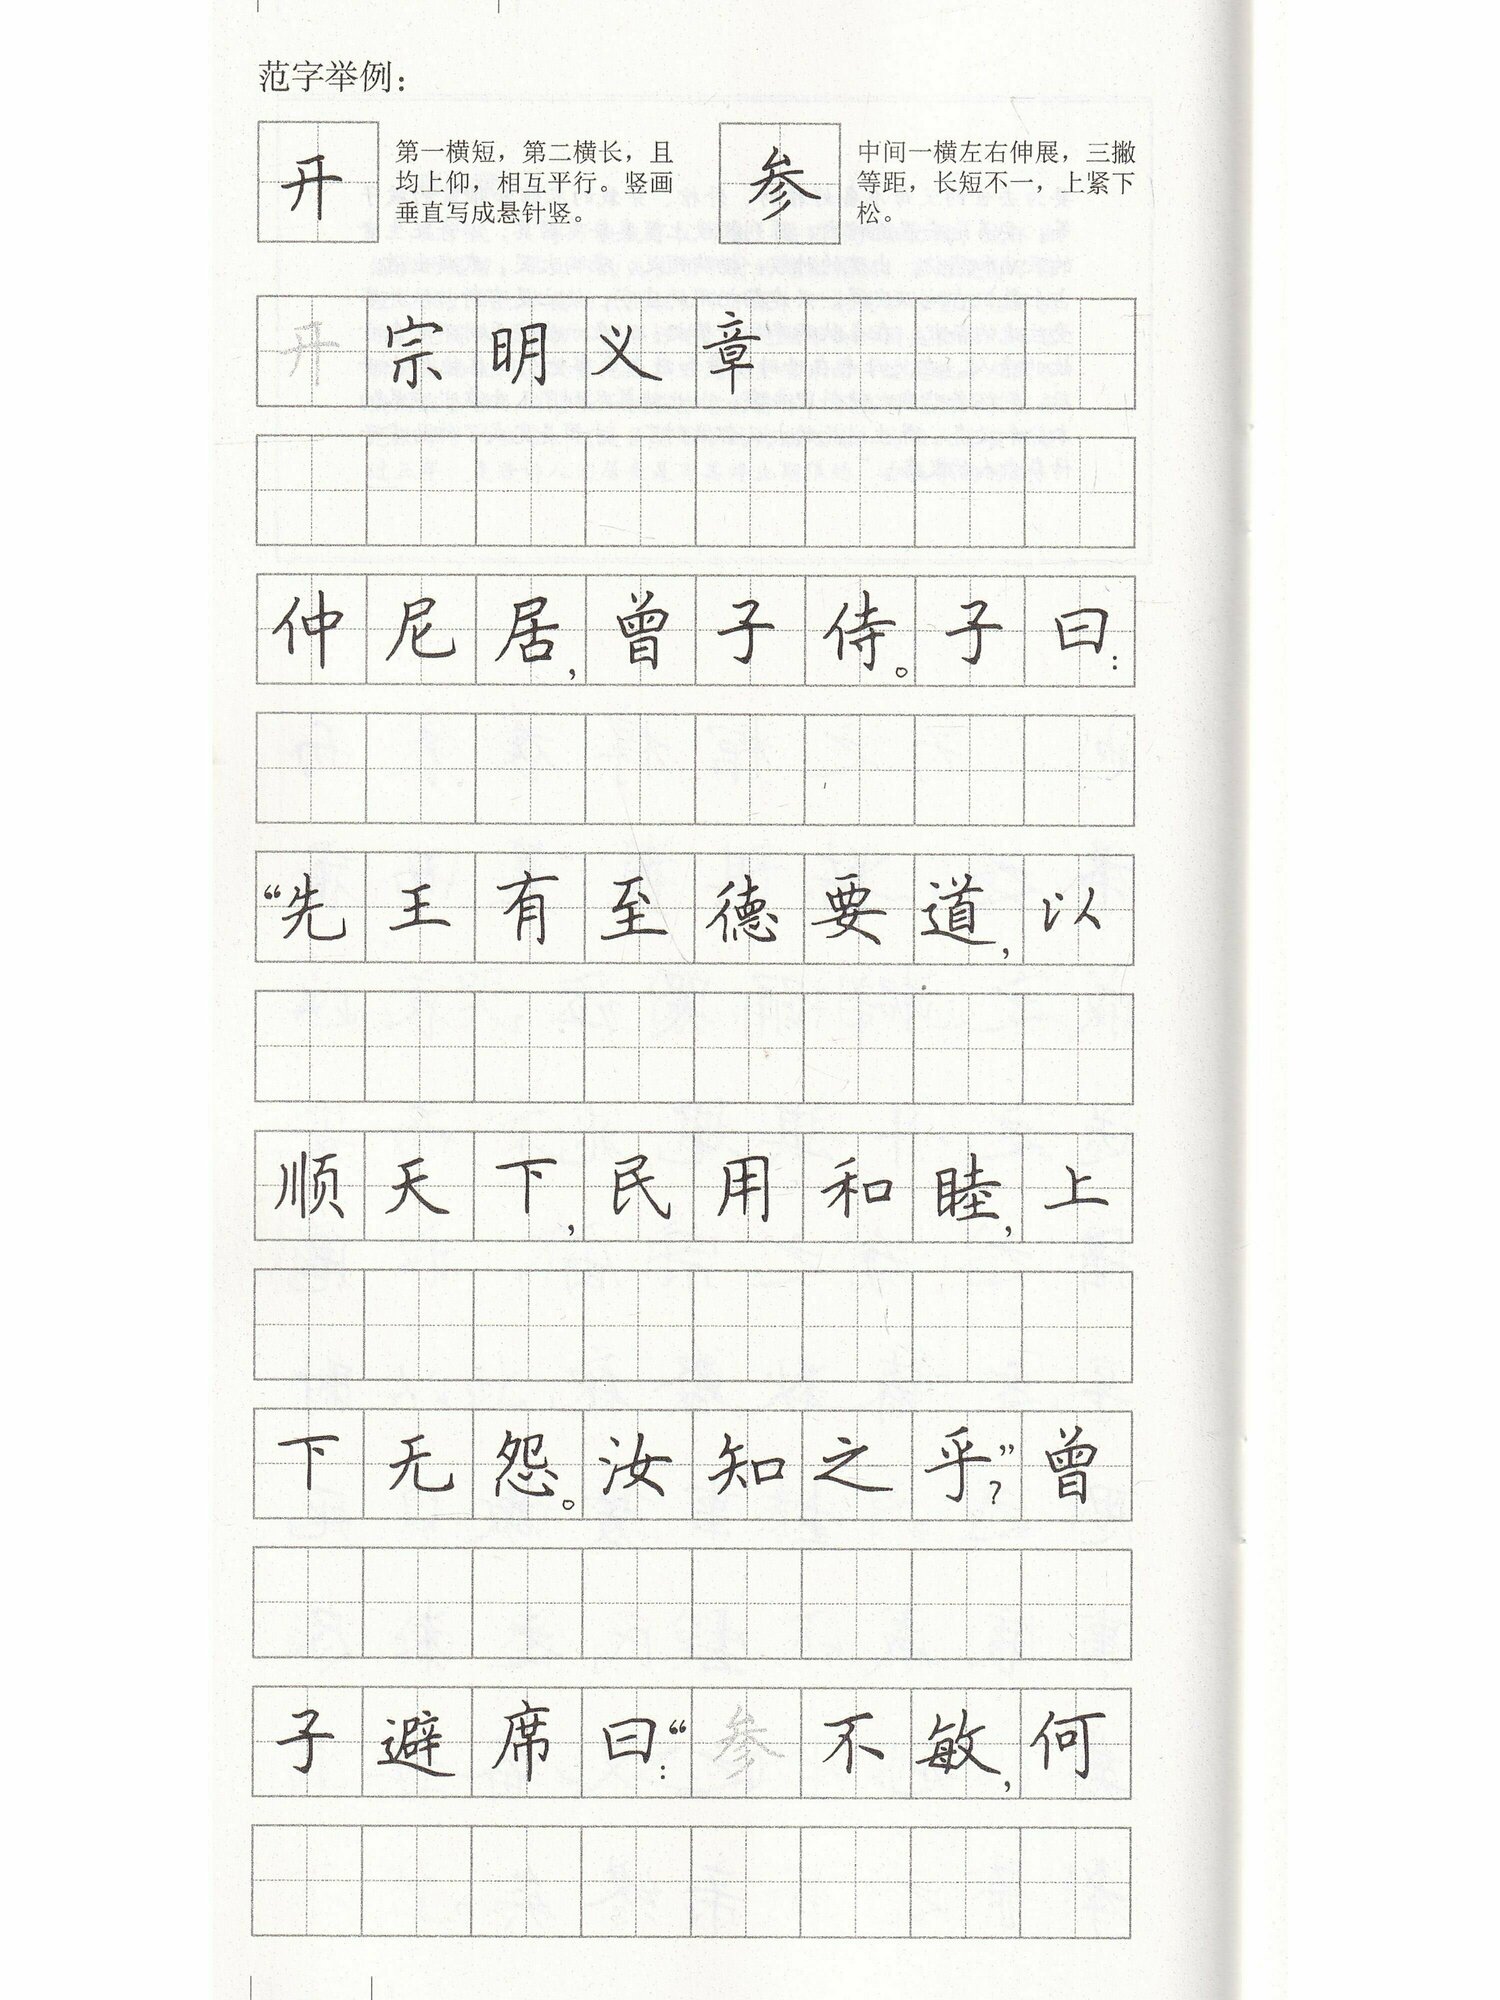 范字举例：
开
第一横短，第二横长，且
均上仰，相互平行。竖画
垂直写成悬针竖。
参
中间一横左右伸展，三撇
等距，长短不一，上紧下
松。
开宗明义章
仲尼居，曾子侍。子曰：
“先王有至德要道，以
顺天下，民用和睦，上
下无怨。汝知之乎？”曾
子避席曰：“参不敏，何